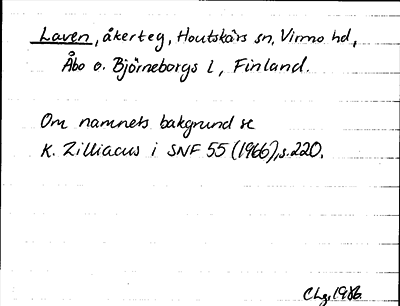 Laven, åkerteg, Houtskärs sn, Virmo hd,
Åbo o. Björneborgs l, Finland.
Om namnets bakgrund se
K. Zilliacus i SNF 55 (1966), s. 220.
CLg, 1986